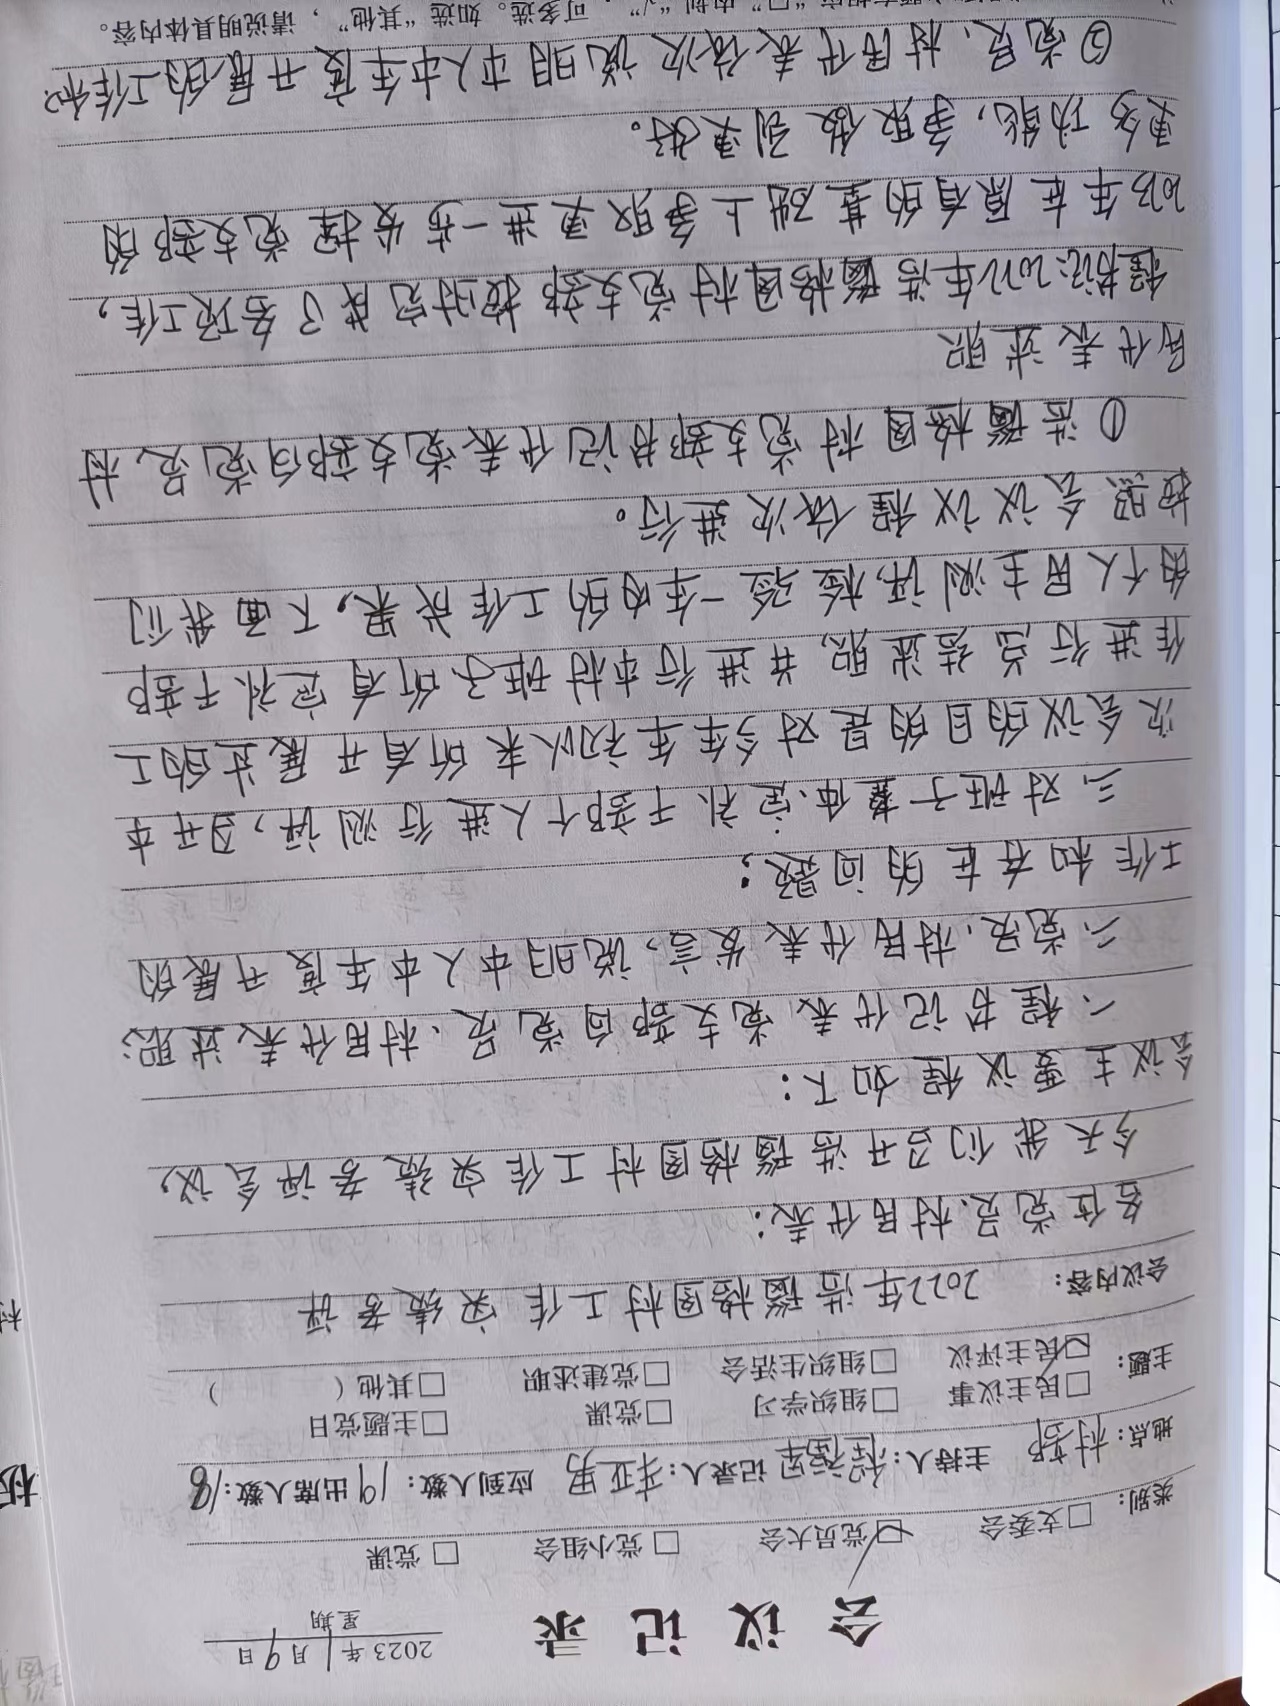 会议记录
2023年1月9日
星期
类别： □支委会 ☑党员大会 □党小组会 □党课
地点：村部 主持人：程福军 记录人： 亚男 应到人数：19 出席人数：18
主题： □民主议事 □组织学习 □党课 □主题党日
☑民主评议 □组织生活会 □党建述职 □其他（ ）
会议内容： 2022年浩瑙格图村工作实绩考评
各位党员、村民代表：
今天我们召开浩瑙格图村工作实绩考评会议，
会议主要议程如下：
一、程书记代表党支部向党员、村民代表述职；
二、党员、村民代表发言，说明本人本年度开展的
工作和存在的问题；
三、对班子整体、定补干部个人进行测评，召开本
次会议的目的是对今年年初以来所有开展过的工
作进行总结述职，并进行本村班子所有定补干部
的个人民主测评，检验一年内的工作成果，下面我们
按照会议议程依次进行。
①浩瑙格图村党支部书记代表党支部向党员、村
民代表述职
程书记：2022年浩瑙格图村党支部按时完成了各项工作，
2023年在原有的基础上争取更进一步发挥党支部的
更多功能，争取做到更好。
②党员、村民代表依次说明本人本年度开展的工作和
可多选。如选“其他”，请说明具体内容。